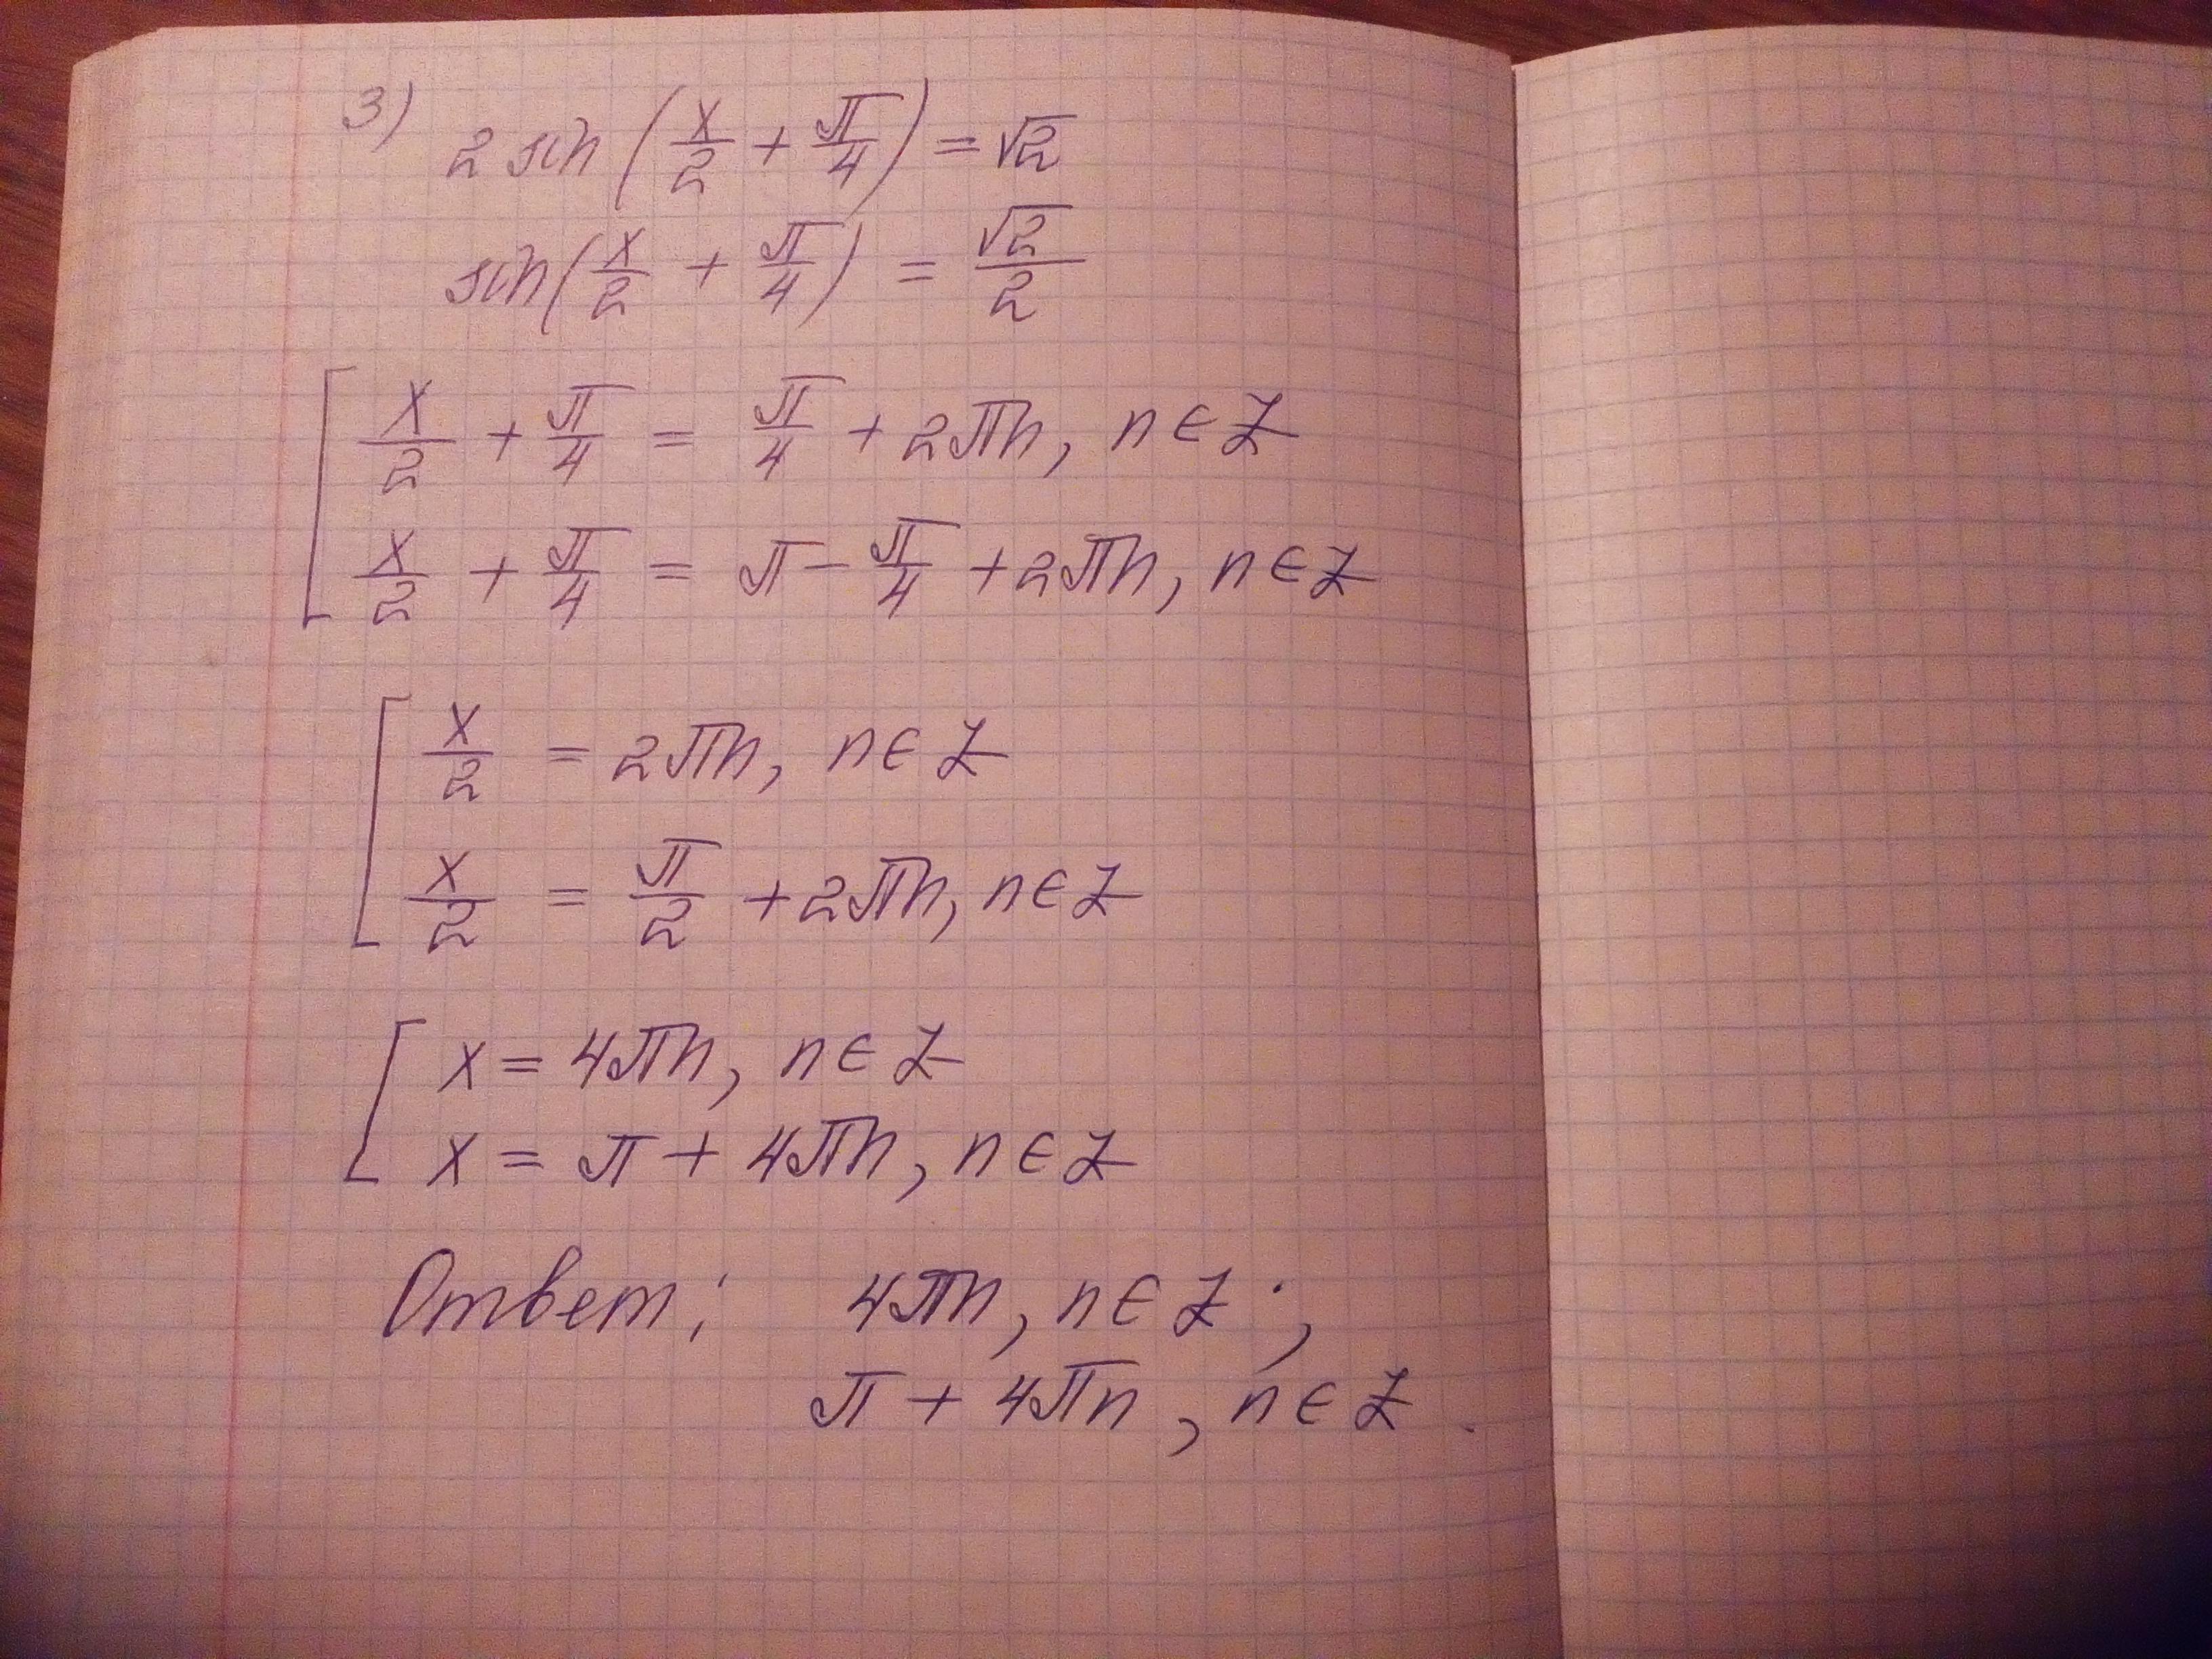 3) 2 sin (x/2 + π/4) = √2
sin(x/2 + π/4) = √2/2
[ x/2 + π/4 = π/4 + 2πn, n ∈ Z
x/2 + π/4 = π - π/4 + 2πn, n ∈ Z
[ x/2 = 2πn, n ∈ Z
x/2 = π/2 + 2πn, n ∈ Z
[ x = 4πn, n ∈ Z
x = π + 4πn, n ∈ Z
Ответ: 4πn, n ∈ Z;
π + 4πn, n ∈ Z.